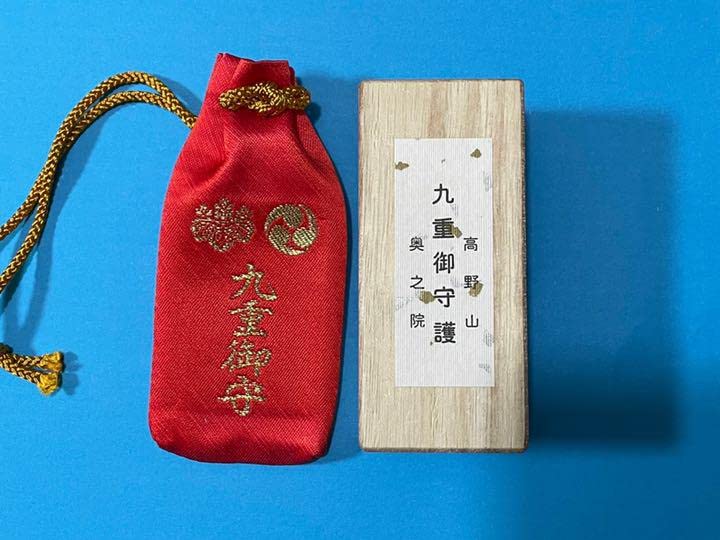 九重御守
高野山
九重御守護
奥之院